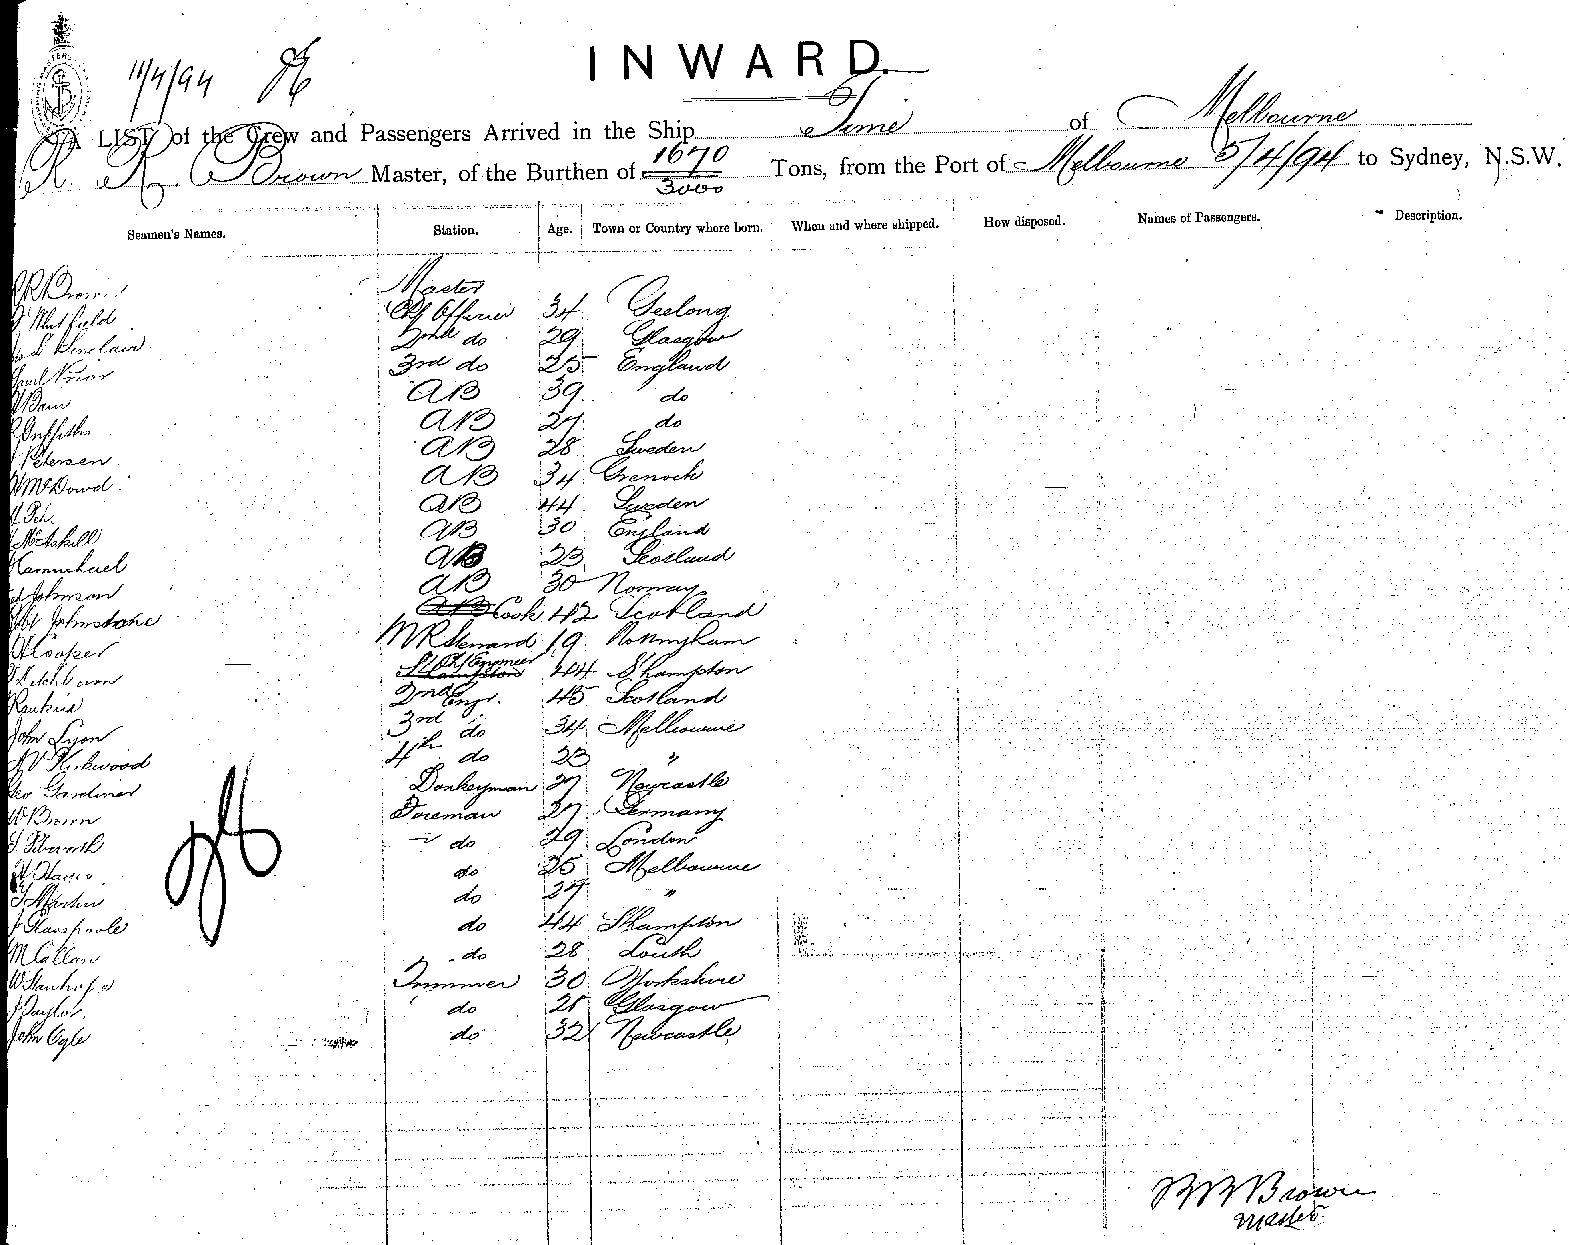 INWARD.
11/4/94
A LIST of the Crew and Passengers Arrived in the Ship Time of Melbourne
R. R. Brown Master, of the Burthen of 1670 / 3000 Tons, from the Port of Melbourne 5/4/94 to Sydney, N.S.W.
Seamen's Names. Station. Age. Town or Country where born. When and where shipped. How disposed. Names of Passengers. Description.
R R Brown Master
Chf Officer 34 Geelong
Sinclair 2nd do 29 Glasgow
3rd do 25 England
AB 39 do
Griffiths AB 27 do
Petersen AB 28 Sweden
McDowd AB 34 Grenock
AB 44 Sweden
McAskill AB 30 England
Carmichael AB 23 Scotland
Johnson AB 30 Norway
Johnstone AB Cook 42 Scotland
Cooper M R Steward 19 Nottingham
Chf Engineer 44 S'hampton
Rankin 2nd Engr. 45 Scotland
John Lyon 3rd do 34 Melbourne
Kirkwood 4th do 23 "
Geo Gardiner Donkeyman 37 Newcastle
W Brown Foreman 27 Germany
do 29 London
do 25 Melbourne
T Martin do 27 "
do 44 S'hampton
M Callan do 28 Louth
W Stanhope Trimmer 30 Yorkshire
J Taylor do 21 Glasgow
John Ogle do 32 Newcastle
R R Brown
Master